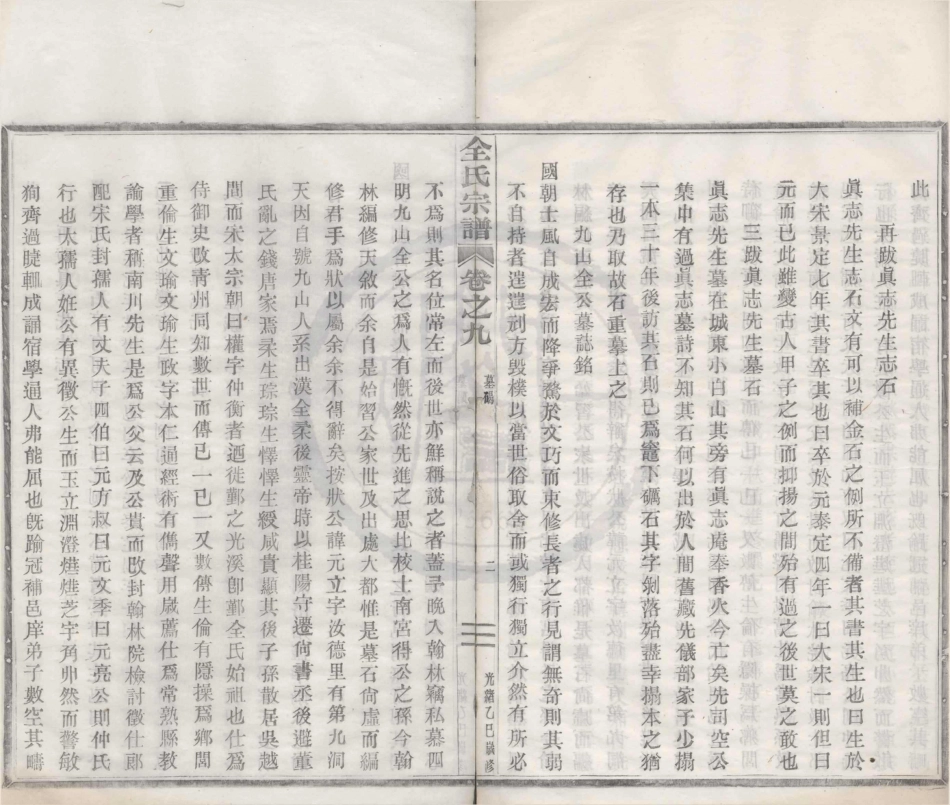 此
再跋眞志先生志石
眞志先生志石文有可以補金石之例所不備者其書其生也曰生於
大宋景定七年其書卒其也曰卒於元泰定四年一曰大宋一則但曰
元而已此雖變古人甲子之例而抑揚之間殆有過之後世莫之敢也
三跋眞志先生墓石
眞志先生墓在城東小白山其旁有眞志庵奉香火今亡矣先司空公
集中有過眞志墓詩不知其石何以出於人間舊藏先儀部家予少搨
一本三十年後訪其石則已爲竈下礪石其字剝落殆盡幸搨本之猶
存也乃取故石重摹上之
林編九山全公墓誌銘
國朝士風自成宏而降爭騖於文巧而東修長者之行見謂無奇則其弱
不自持者遑遑刓方毀樸以當世俗取舍而或獨行獨立介然有所必
全氏宗譜 卷之九 墓碣 二 光緒乙巳續修
不爲則其名位常左而後世亦鮮稱說之者蓋予晚入翰林竊私慕四
國明九山全公之爲人有慨然從先進之思比校士南宮得公之孫今翰
林編修天敘而余自是始習公家世及出處大都惟是墓石尙虛而編
修君手爲狀以屬余余不得辭矣按狀公諱元立字汝德里有第九洞
天因自號九山人系出漢全柔後靈帝時以桂陽守遷尙書丞後避董
氏亂之錢唐家焉柔生琮琮生懌懌生緩咸貴顯其後子孫散居吳越
間而宋太宗朝曰權字仲衡者迺徙鄞之光溪卽鄞全氏始祖也仕爲
侍御史改靑州同知數世而傳已一已一又數傳生倫有隱操爲鄉閭
重倫生文瑜文瑜生政字本仁通經術有儁聲用歲薦仕爲常熟縣教
諭學者稱南川先生是爲公父云及公貴而改封翰林院檢討徵仕郎
配宋氏封孺人有丈夫子四伯曰元方叔曰元文季曰元亮公則仲氏
行也太孺人姙公有異徵公生而玉立淵澄燁燁芝宇角丱然而警敏
狥齊過睫輙成誦宿學通人弗能屈也旣踰冠補邑庠弟子數空其疇